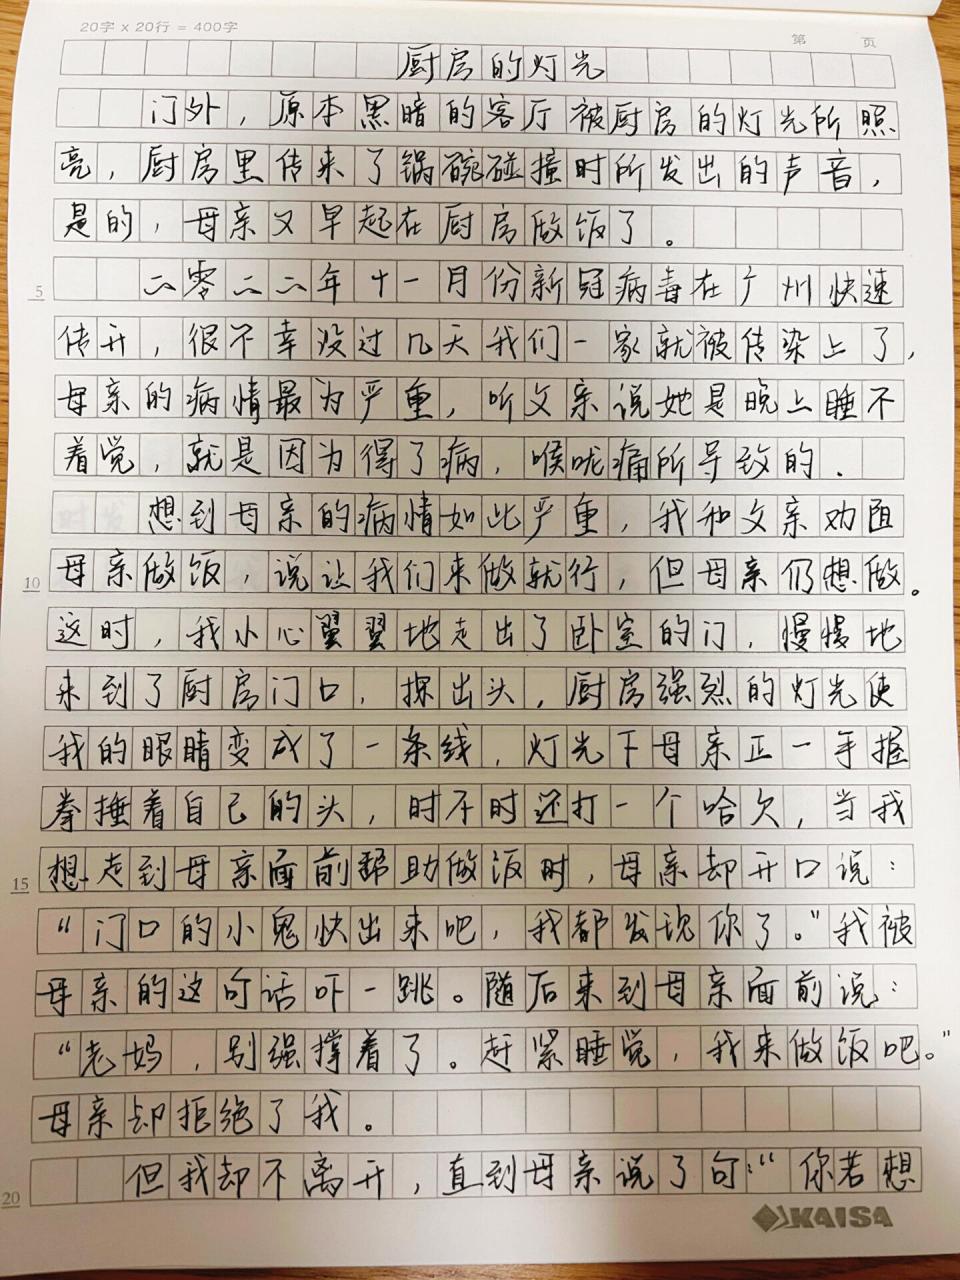 20字 x 20行 = 400字
第 页
厨房的灯光
门外，原本黑暗的客厅被厨房的灯光所照
亮，厨房里传来了锅碗碰撞时所发出的声音，
是的，母亲又早起在厨房做饭了。
5
二零二二年十一月份新冠病毒在广州快速
传开，很不幸没过几天我们一家就被传染上了，
母亲的病情最为严重，听父亲说她是晚上睡不
着觉，就是因为得了病，喉咙痛所导致的.
想到母亲的病情如此严重，我和父亲劝阻
10
母亲做饭，说让我们来做就行，但母亲仍想做。
这时，我小心翼翼地走出了卧室的门，慢慢地
来到了厨房门口，探出头，厨房强烈的灯光使
我的眼睛变成了一条线，灯光下母亲正一手握
拳捶着自己的头，时不时还打一个哈欠，当我
15
想走到母亲面前帮助做饭时，母亲却开口说：
“门口的小鬼快出来吧，我都发现你了。”我被
母亲的这句话吓一跳。随后来到母亲面前说：
“老妈，别强撑着了。赶紧睡觉，我来做饭吧。”
母亲却拒绝了我。
20
但我却不离开，直到母亲说了句：“你若想
KAISA